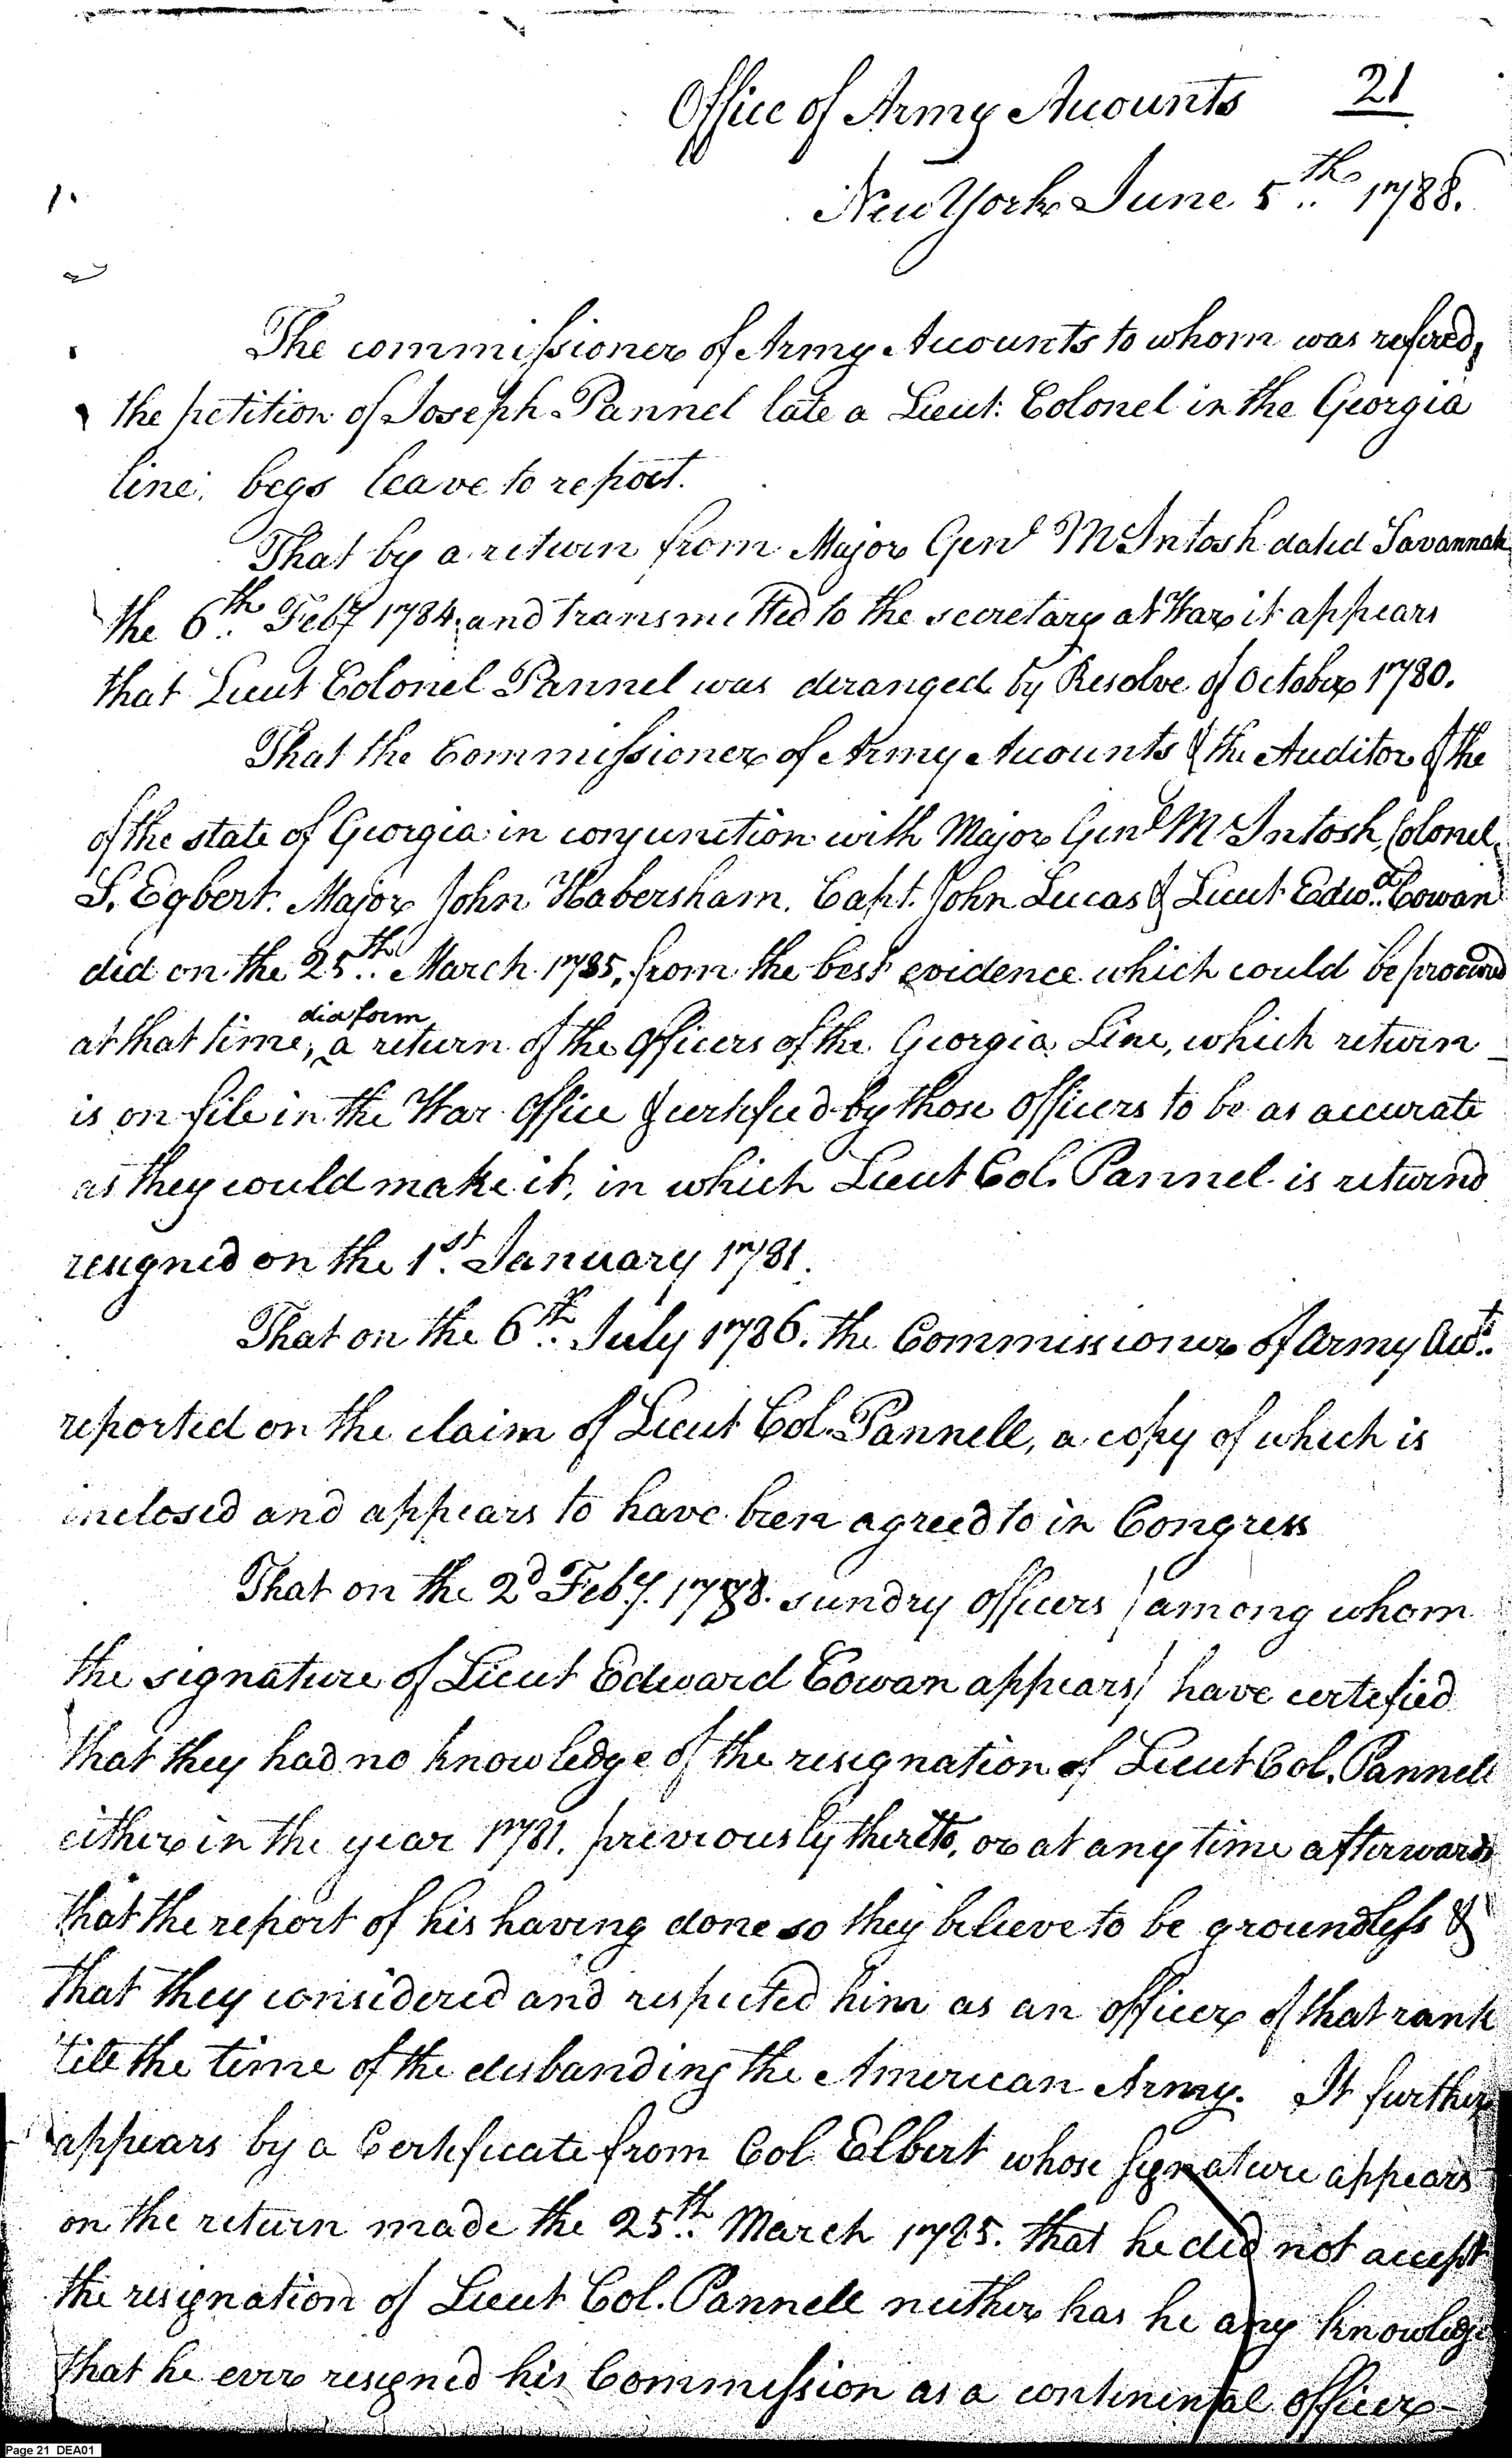 Office of Army Accounts 21
New York June 5th 1788.
The commissioner of Army Accounts to whom was refered,
the petition of Joseph Pannel late a Lieut. Colonel in the Georgia
line; begs leave to report.
That by a return from Major Genl McIntosh dated Savannah
the 6th Feby 1784, and transmitted to the secretary at War it appears
that Lieut Colonel Pannel was deranged by Resolve of October 1780.
That the Commissioner of Army Accounts & the Auditor of the
of the state of Georgia in conjunction with Major Genl McIntosh, Colonel
S. Egbert. Major John Habersham. Capt. John Lucas & Lieut Edwd. Cowan
did on the 25th March 1785, from the best evidence which could be procured
did form
at that time, a return of the Officers of the Georgia Line, which return
is on file in the War Office & certified by those Officers to be as accurate
as they could make it, in which Lieut Col. Pannel is returnd
resigned on the 1st January 1781.
That on the 6th July 1786. the Commissioner of Army Accts.
reported on the claim of Lieut Col. Pannell, a copy of which is
inclosed and appears to have been agreed to in Congress
That on the 2d Feby. 1788. sundry officers / among whom
the signature of Lieut Edward Cowan appears / have certified
that they had no knowledge of the resignation of Lieut Col. Pannell
either in the year 1781. previously thereto, or at any time afterwards
that the report of his having done so they believe to be groundless &
that they considered and respected him as an officer of that rank
till the time of the disbanding the American Army. It further
appears by a Certificate from Col Elbert whose signature appears
on the return made the 25th March 1785. that he did not accept
the resignation of Lieut Col. Pannell neither has he any knowledge
that he ever resigned his Commission as a continental officer-
Page 21 DEA01